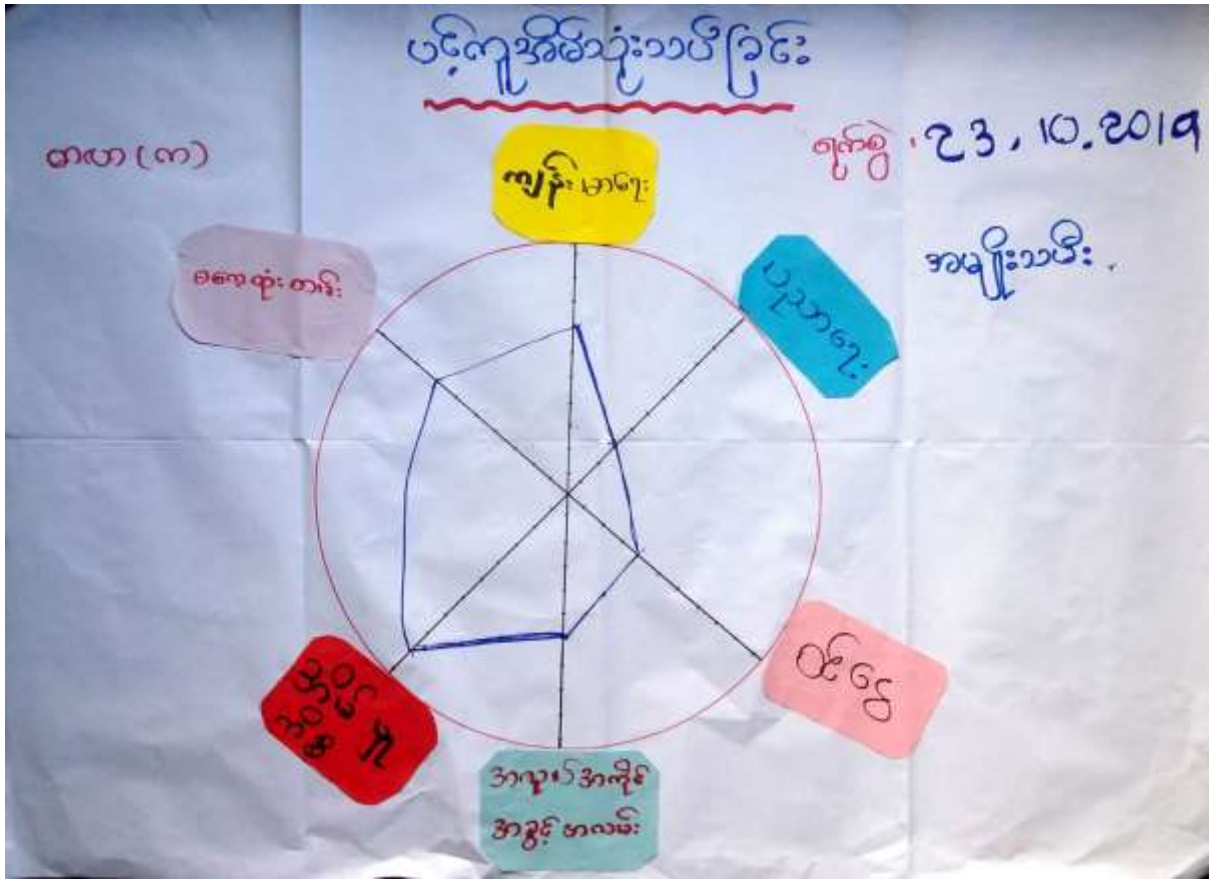 ပင့်ကူအိမ်သုံးသပ်ခြင်း
တလာ (က)
ရက်စွဲ . 23 . 10 . 2019
အမျိုးသမီး .
ကျန်းမာရေး
ပညာရေး
ဝင်ငွေ
အလုပ်အကိုင်
အခွင့်အလမ်း
အိမ်မှု
ကိစ္စ
ဓလေ့ထုံးတမ်း